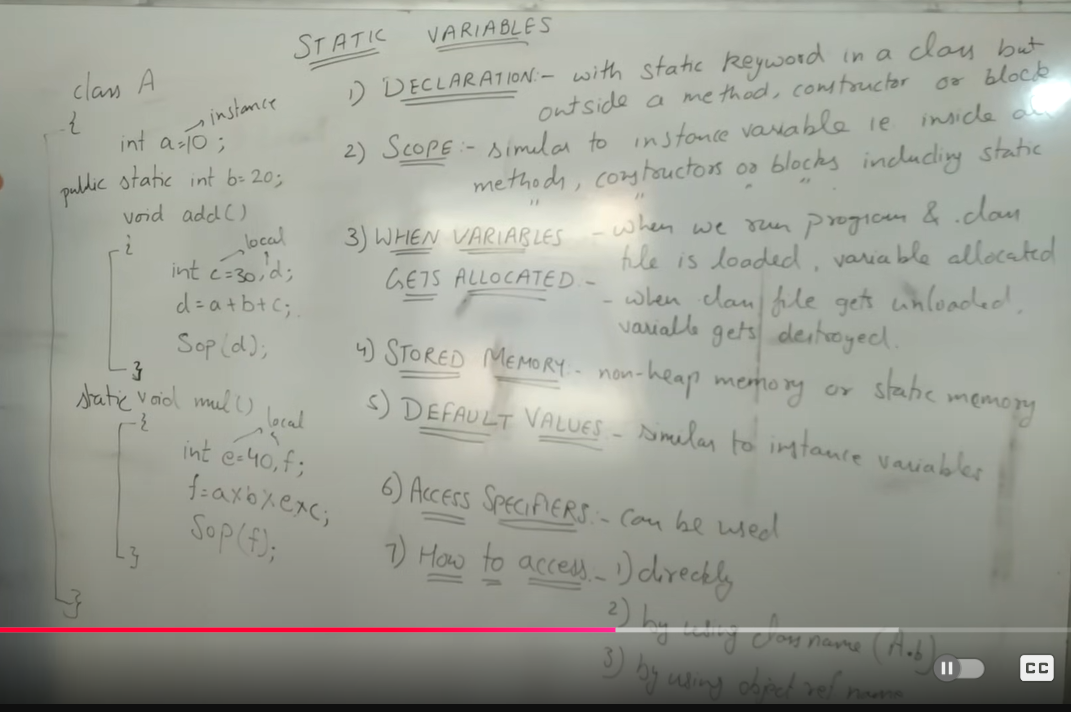 STATIC VARIABLES
class A
{
instance
int a=10;
public static int b=20;
void add()
{
local
int c=30,d;
d=a+b+c;
Sop(d);
}
static void mul()
{
local
int e=40,f;
f=axb×exc;
Sop(f);
}
}
1) DECLARATION:- with static keyword in a class but
outside a method, constructor or block
2) SCOPE:- similar to instance variable ie inside all
methods, constructors or blocks including static
" " " "
3) WHEN VARIABLES
GETS ALLOCATED:-
- when we run program & .class
file is loaded, variable allocated
- when class file gets unloaded,
variable gets destroyed.
4) STORED MEMORY:- non-heap memory or static memory
5) DEFAULT VALUES - similar to instance variables
6) ACCESS SPECIFIERS:- can be used
7) How to access - 1) directly
2) by using class name (A.b)
3) by using object ref name
CC